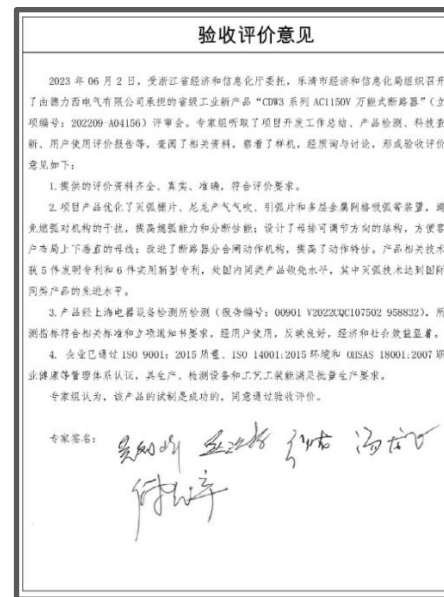 验收评价意见
2023 年 06 月 2 日，受浙江省经济和信息化厅委托，乐清市经济和信息化局组织召开
了由德力西电气有限公司承担的省级工业新产品“CDW3 系列 AC1150V 万能式断路器”（立
项编号：202209-A04156）评审会。专家组听取了项目开发工作总结、产品检测、科技查
新、用户使用评价报告等，查阅了相关资料，察看了样机，经质询与讨论，形成验收评价
意见如下：
1.提供的评价资料齐全、真实、准确，符合评价要求。
2.项目产品优化了灭弧栅片、尼龙产气气吹、引弧片和多层金属网格吸弧等装置，避
免燃弧对机构的干扰，提高熄弧能力和分断性能；设计了母排可调节方向的结构，方便客
户布局上下垂直的母线；改进了断路器分合闸动作机构，提高了动作特性。产品相关技术
获 5 件发明专利和 6 件实用新型专利，处国内同类产品领先水平，其中灭弧技术达到国际
同类产品的先进水平。
3.产品经上海电器设备检测所检测（报告编号：00901 V2022CQC107502 958832），所
测指标符合相关标准和立项通知书要求，经用户使用，反映良好，经济和社会效益显著。
4. 企业已通过 ISO 9001：2015 质量、ISO 14001:2015 环境和 OHSAS 18001:2007 职
业健康等管理体系认证，其生产、检测设备和工艺工装能满足批量生产要求。
专家组认为，该产品的试制是成功的，同意通过验收评价。
专家签名：